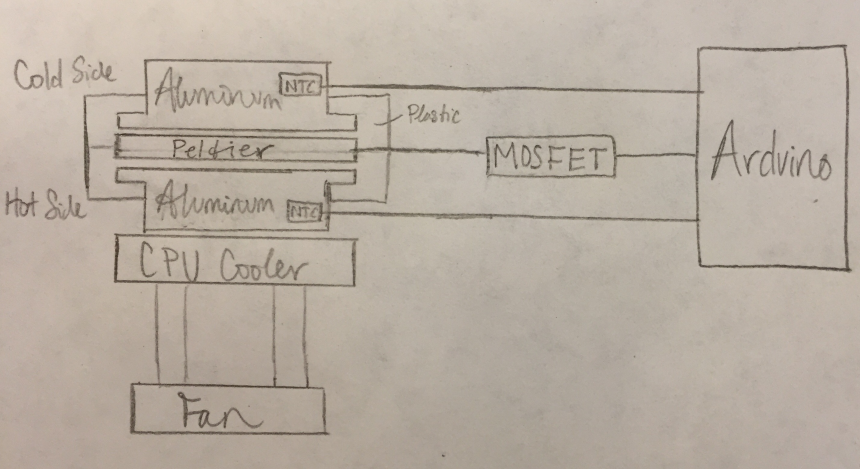 Cold Side
Aluminum
NTC
Plastic
Peltier
MOSFET
Arduino
Hot Side
Aluminum
NTC
CPU Cooler
Fan